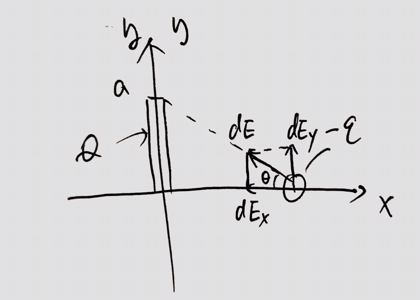 y y
a
Q
dE dEy -q
θ
dEx
x